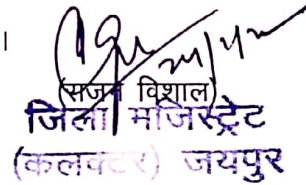 ।
(सजन विशाल)
जिला मजिस्ट्रेट
(कलक्टर) जयपुर